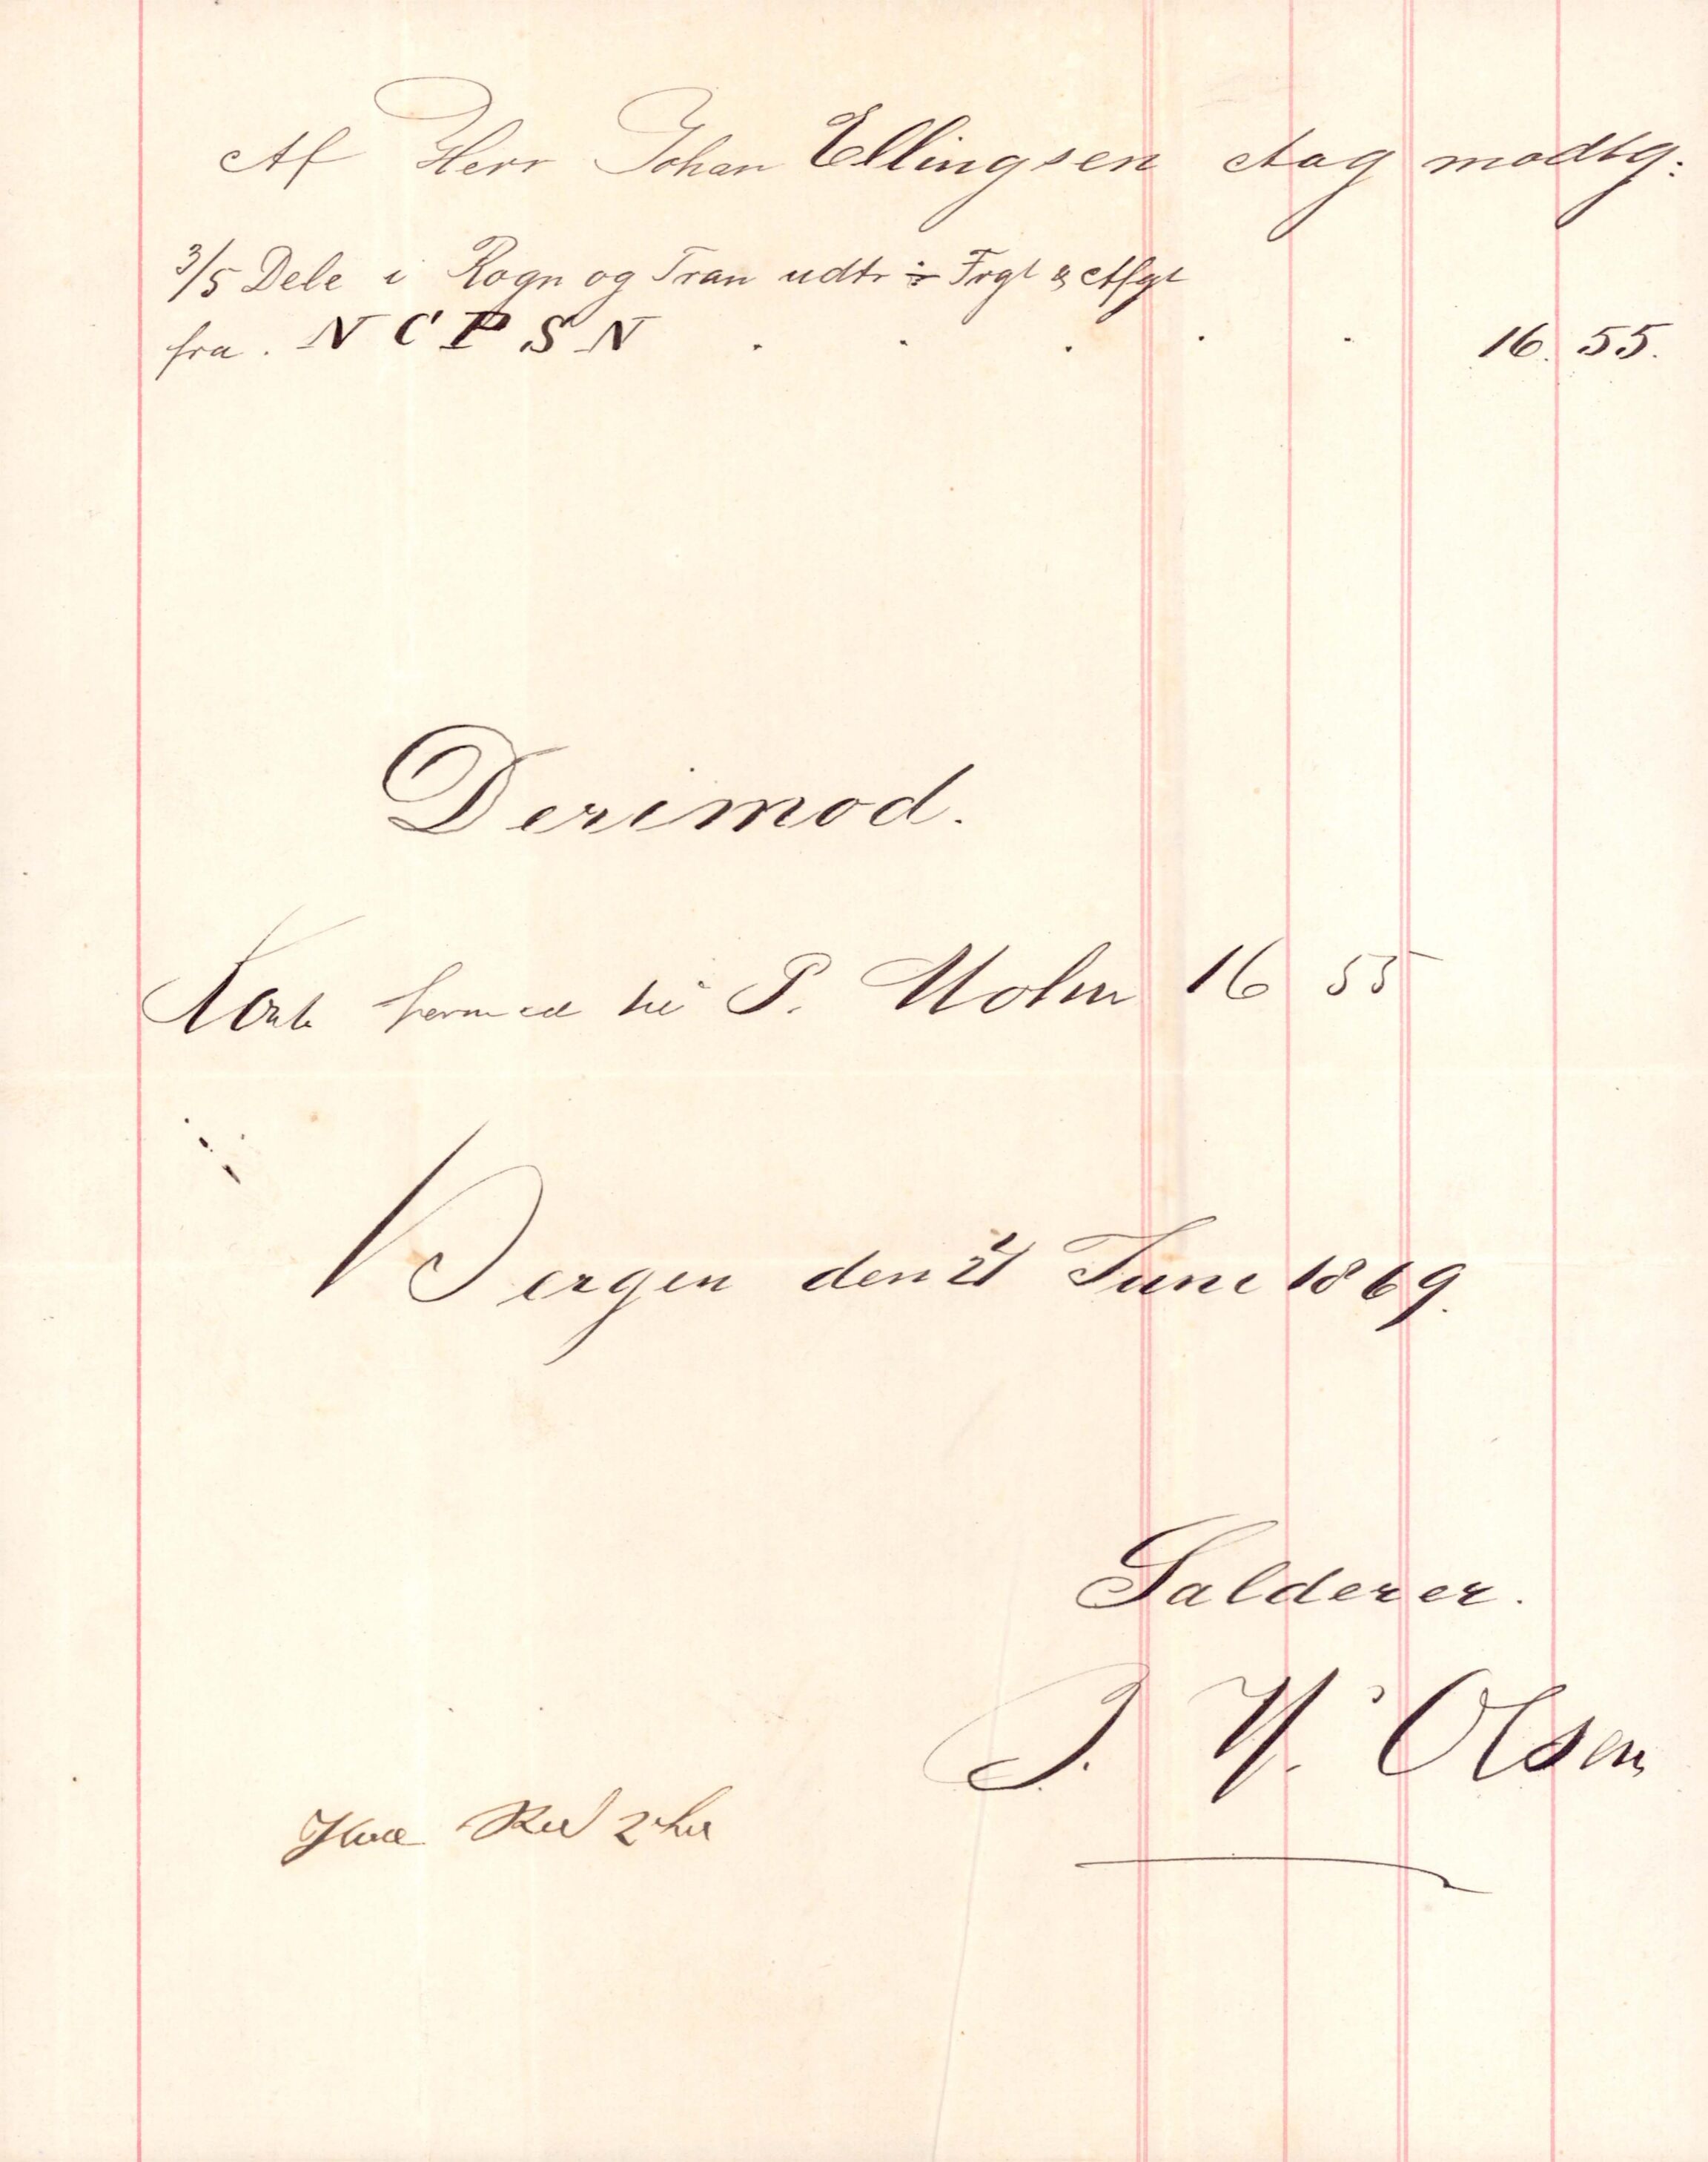 Af Herr Johan Ellingsen Aag modtg:
3/5 Dele i Rogn og Tran udtr ÷ Frgt & Afgt
fra . N C P S N . . . . . 16. 55.
Derimod.
hermed til P. Holm 16 55
Bergen den 21 Juni 1869.
Salderer.
J. H. Olsen